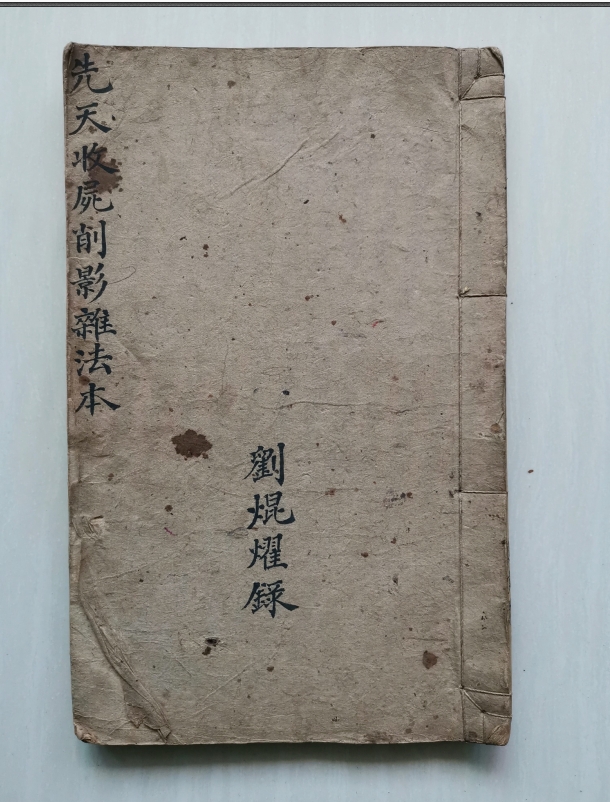 先天收屍削影雜法本
劉焜燿録